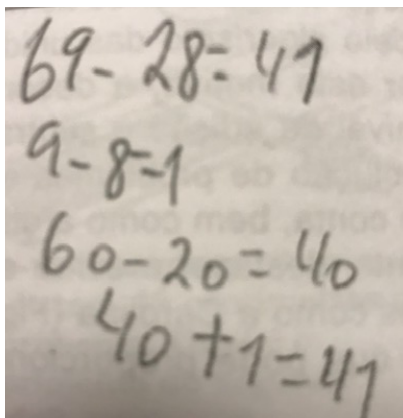 69-28=41
9-8=1
60-20=40
40+1=41